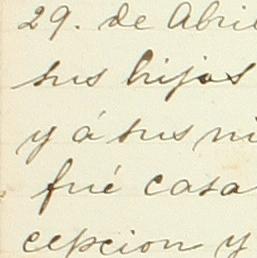 29. de Abri
sus hijos
y á sus ni
fué casa
cepcion y